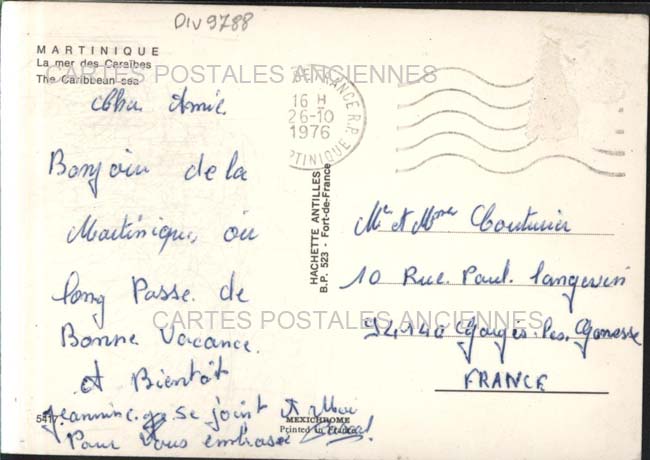 DIV9788
MARTINIQUE
La mer des Caraïbes
The Caribbean sea
CARTES POSTALES ANCIENNES
Amie
Bonjour de la
Martinique, ou
long Passe de
Bonne Vacance.
et Bientôt
Jeannine se joint A Moi
Pour Vous embrasse
5417
FORT DE FRANCE R.P.
16 H
26-10
1976
MARTINIQUE
HACHETTE ANTILLES
B.P. 523 - Fort-de-France
Mr et Mme Couturier
10 Rue. Paul. Langevin
CARTES POSTALES ANCIENNES
Les Gonesse
FRANCE
MEXICHROME
Printed in France